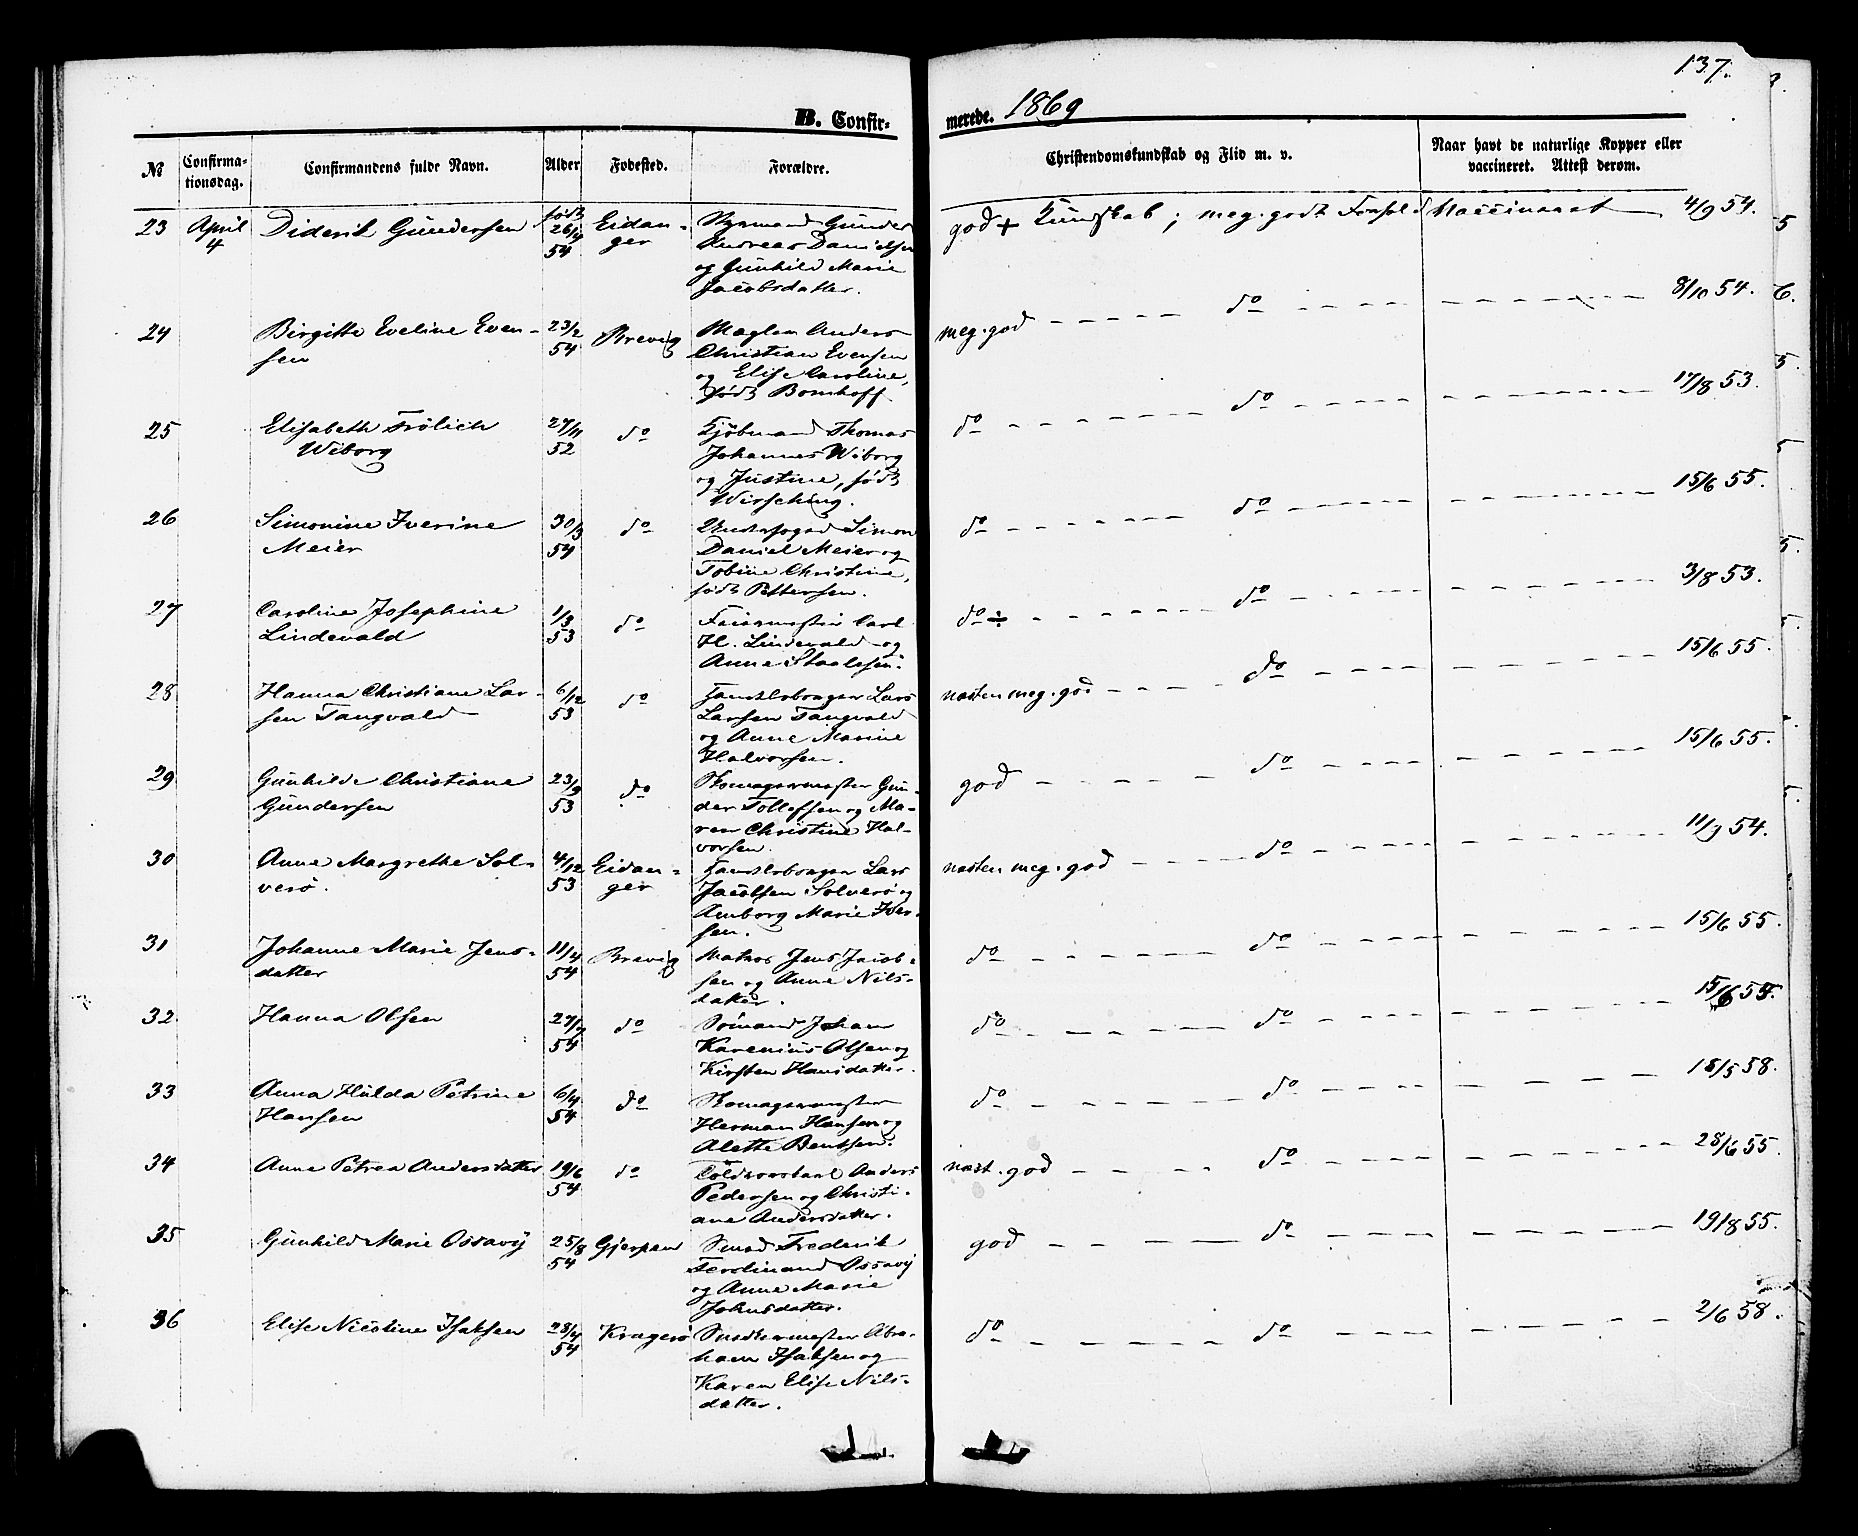 137.
B. Confirmerede. 1869
№
Confirmationsdag.
Confirmandens fulde Navn.
Alder
Fødested.
Forældre.
Christendomskundskab og Flid m. v.
Naar havt de naturlige Kopper eller vaccineret. Attest derom.
23 April 4 Diderik Gundersen født 26/4 54 Eidanger
Gunder
Andreas Danielsen
og Gunhild Marie
Jacobsdatter.
god + Kundskab; meg. godt Forhold Vaccineret 4/9 54.
24 Birgitte Eveline Even-
sen
23/2 54 Brevig
Anders
Christian Evensen
og Elise Caroline,
født Bomhoff.
meg. god do 8/10 54.
25 Elisabeth Frölich
Wiborg
27/11 52 do
Kjøbmand Thomas
Johannes Wiborg
og Justine, født
Wirsching.
do do 17/8 53.
26 Simonine Iverine
Meier
30/3 54 do
Underfoged Simon
Daniel Meier og
Tobine Christine,
født Pettersen.
do do 15/6 55.
27 Caroline Josephine
Lindevald
1/3 53 do
Feiermester Carl
H. Lindevald og
Anne Staalesen.
do ÷ do 3/8 53.
28 Hanna Christiane Lar-
sen Tangvald
6/12 53 do
Lars
Larsen Tangvald
og Anne Marine
Halvorsen.
næsten meg. god do 15/6 55.
29 Gunhilde Christiane
Gundersen
23/9 53 do
Skomagermester Gun-
der Tollefsen og Ma-
ren Christine Hal-
vorsen.
god do 15/6 55.
30 Anne Margrethe Sol-
verö.
4/12 53 Eidan-
ger
Lars
Jacobsen Solverö og
Amborg Marie Iver-
sen.
næsten meg. god do 11/9 54.
31 Johanne Marie Jens-
datter
11/4 54 Brevig
Matros Jens Jacob-
sen og Anne Nils-
datter.
do do 15/6 55.
32 Hanna Olsen 27/7 54 do
Sömand Johan
Karenius Olsen og
Kirsten Hansdatter.
do do 15/6 55.
33 Anna Hulda Petrine
Hansen
6/4 54 do
Skomagermester
Herman Hansen og
Alette Bentsen.
do do 18/5 58.
34 Anne Petrea Andersdatter 19/6 54 do
Anders
Pedersen og Christi-
ane Andersdatter.
næst. god do 28/6 55.
35 Gunhild Marie Ossavy 25/8 54 Gjerpen
Smed Frederik
Ferdinand Ossavy
og Anne Marie
Johnsdatter.
god do 19/8 55.
36 Elise Nicoline Isaksen 28/4 54 Kragerö
Snedkermester Abra-
ham Isaksen og
Karen Elise Nils-
datter.
do do 2/6 58.